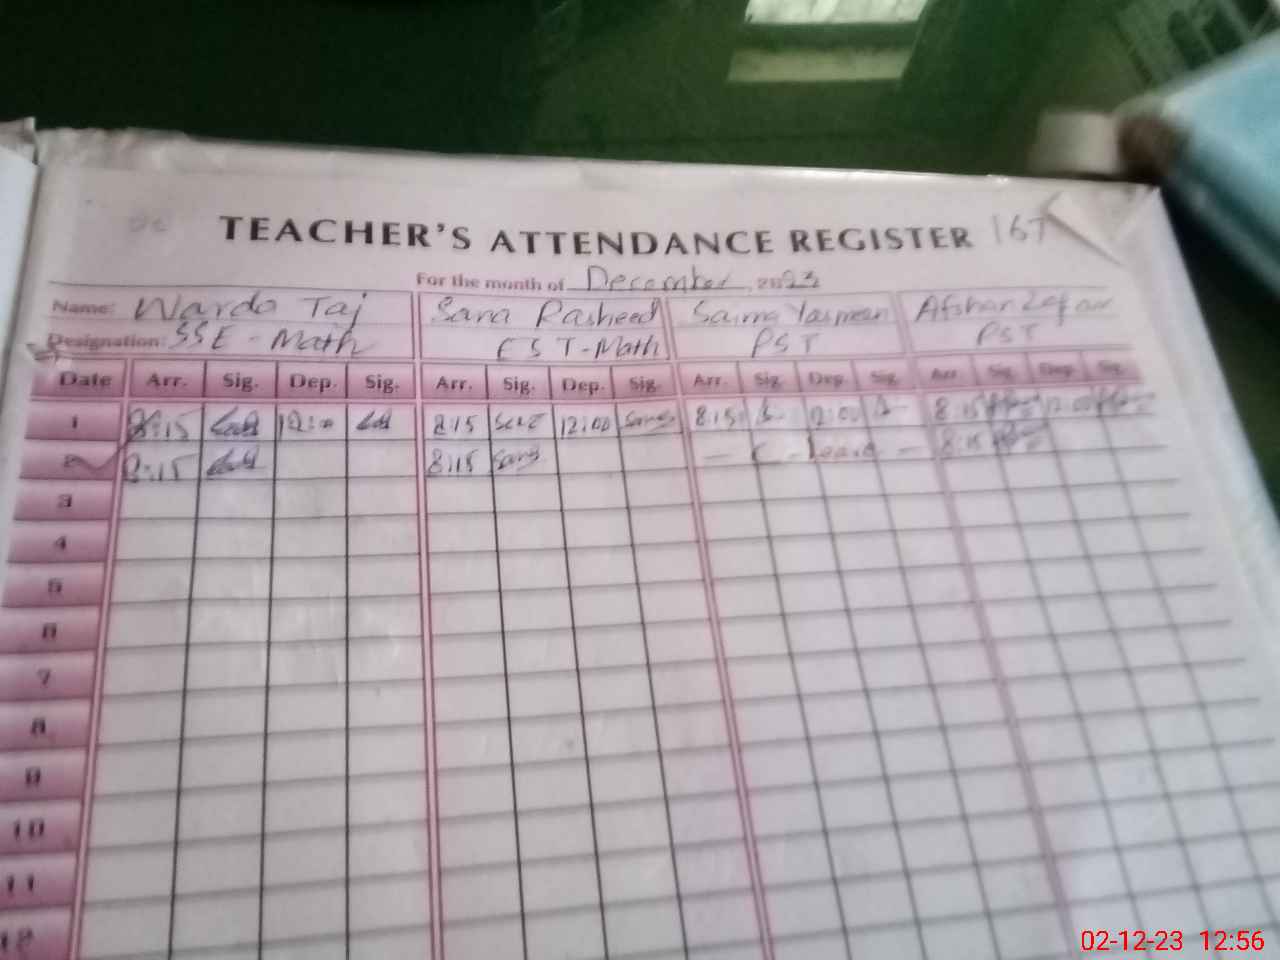 TEACHER'S ATTENDANCE REGISTER 167
For the month of December, 2023
Name: Warda Taj Sara Rasheed Saima Yasmeen Afshan Zafar
Designation: SSE - Math EST-Math PST PST
Date Arr. Sig. Dep. Sig. Arr. Sig. Dep. Sig. Arr. Sig. Dep. Sig. Arr. Sig. Dep. Sig.
1 8:15 12:00 8:15 12:00 8:15 12:00 8:15 12:00
2 8:15 8:15 - C - Leave - 8:15
3
4
5
6
7
8
9
10
11
12
02-12-23 12:56